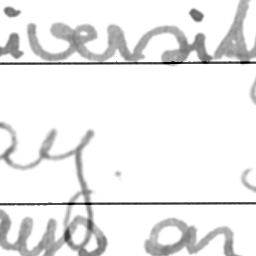 iversit
ay.
ays on